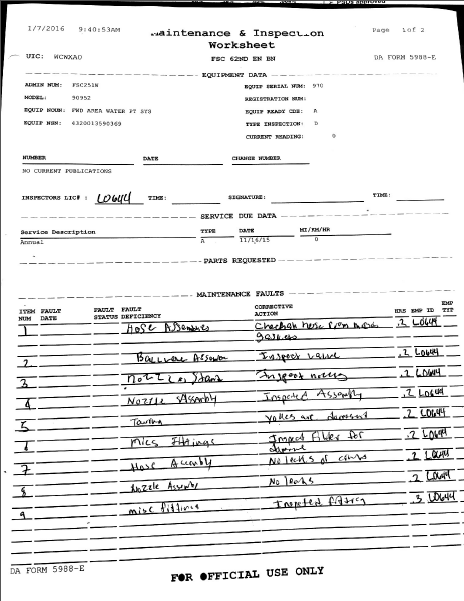 1/7/2016 9:40:53AM
Maintenance & Inspection
Worksheet
Page 1of 2
UIC: WCNXA0
FSC 62ND EN BN
DA FORM 5988-E
EQUIPMENT DATA
ADMIN NUM: FSC251W
EQUIP SERIAL NUM: 970
MODEL: 90952
REGISTRATION NUM:
EQUIP NOUN: FWD AREA WATER PT SYS
EQUIP READY CDE: A
EQUIP NSN: 4320013590369
TYPE INSPECTION: D
CURRENT READING: 0
NUMBER DATE CHANGE NUMBER
NO CURRENT PUBLICATIONS
INSPECTORS LIC# : L0644 TIME: SIGNATURE: TIME:
SERVICE DUE DATA
Service Description TYPE DATE MI/KM/HR
Annual A 11/16/15 0
PARTS REQUESTED
MAINTENANCE FAULTS
ITEM NUM FAULT DATE FAULT STATUS FAULT DEFICIENCY CORRECTIVE ACTION HRS EMP ID EMP TYP
1 Hose .2 L0644
2 Inspect valve .2 L0644
3 Inspect .2 L0644
4 Nozzle Assembly Inspected Assembly .2 L0644
5 .2 L0644
6 Fittings Inspect Filter For .2 L0644
7 Hose No leaks or .2 L0644
8 Nozzle No leaks .2 L0644
9 misc fittings Inspected fitting .3 L0644
DA FORM 5988-E
FOR OFFICIAL USE ONLY